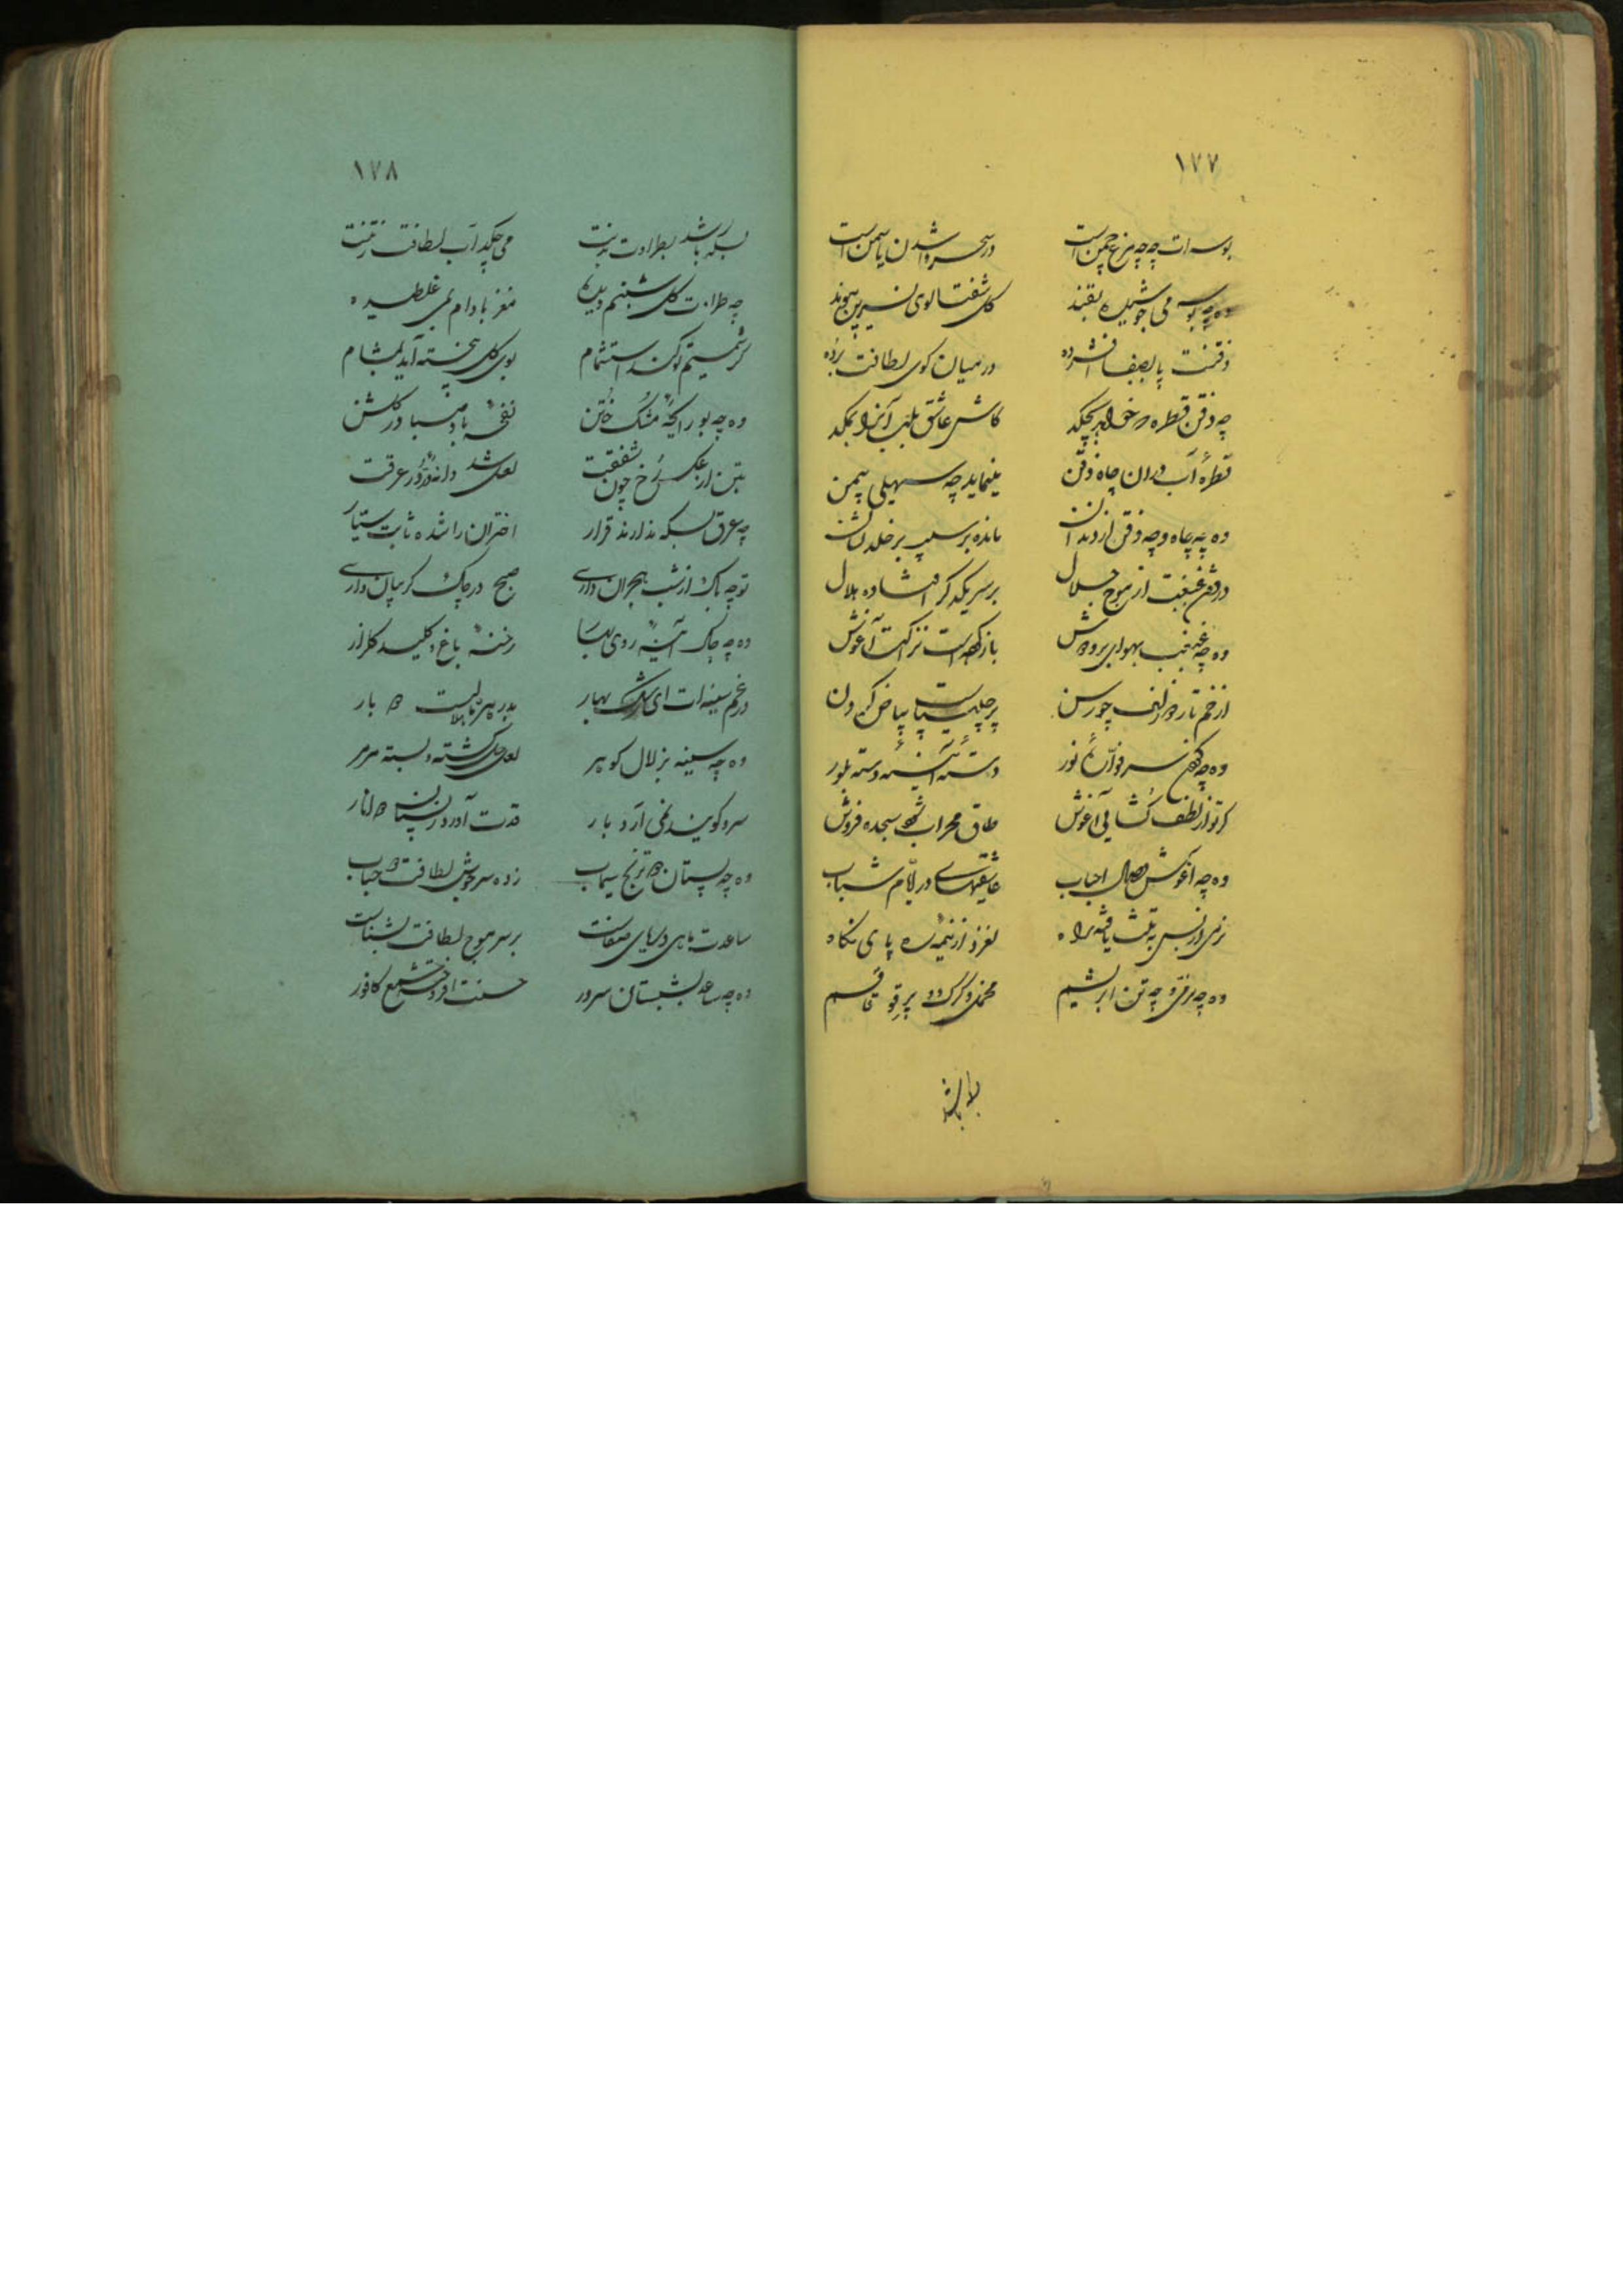 ۱۷۷
بوسه ات چه چه مرغ چمن است در سحر وا شدن یاسمن است
وه چه بوسه می جوشیده بقند گل شفتالوی نسرین پیوند
ذقنت پا بصفا افشرده در میان گوی لطافت برده
چه ذقن قطره خواهد بچکد کاش عاشق بلب آنرا بمکد
قطرهٔ آب در ان چاه ذقن مینماید چه سهیلی بیمن
وه چه چاه و چه ذقن از دندان مانده بر سیب بر خلد نشان
در ذقن غبغبت از موج جمال بر سر یکدگر افتاده هلال
وه چه غبغب بهوای بر و دوش باز کرده است نزاکت آغوش
از خم تار زلف چو رسن پر چلیپاست بیاض گردن
وه چه گردن سر فوارهٔ نور دستهٔ آئینهٔ دسته بلور
گر تو از لطف گشایی آغوش طاق محراب شود سجده فروش
وه چه آغوش وصال احباب عاشقیهای در ایام شباب
نرمی از بس به تنت یافته راه لغزد از نیمه ره پای نگاه
وه چه نرمی و چه تن ابریشم مخمل و کرک و پر قو قاقم
بسکه باشد
۱۷۸
بسکه باشد بطراوت بدنت می چکد آب لطافت ز تنت
چه طراوت گل شبنم دیده مغز بادام بمی غلطیده
گر شمیم تو کند استشمام بوی گل پخته آید بمشام
وه چه بو رایحهٔ مشک ختن نفحهٔ باد صبا در گلشن
بتن از عکس رخ چون شفقت لعل شد دانهٔ در عرقت
چه عرق بسکه ندارند قرار اختران را شده ثابت سیار
تو چه باک از شب هجران داری صبح در چاک گریبان داری
وه چه چاک آینهٔ روی بهار رخنهٔ باغ و کلید گلزار
در غم سینه ات ای رشک بهار بدر بار
وه چه سینه ز زلال گوهر لعل حل گشته و بسته مرمر
سرو گویند نمی آرد بار قدت آورد ز پستان انار
وه چه پستان ترنج سیماب زده سرجوش لطافت حباب
ساعدت ماهی دریای صفاست بر سر موج لطافت بشناست
وه چه ساعد بشبستان سرور حسنت افروخته شمع کافور